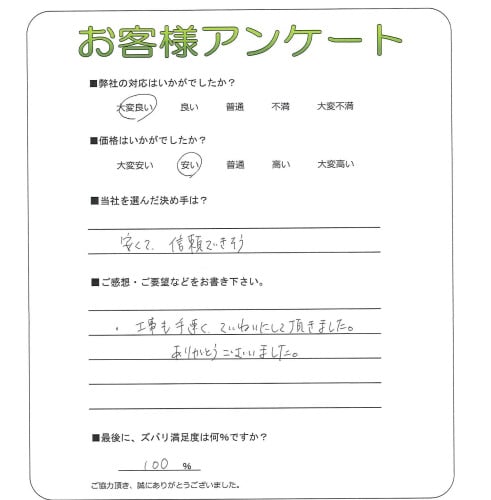 お客様アンケート
■弊社の対応はいかがでしたか？
大変良い 良い 普通 不満 大変不満
■価格はいかがでしたか？
大変安い 安い 普通 高い 大変高い
■当社を選んだ決め手は？
安くて、信頼できそう
■ご感想・ご要望などをお書き下さい。
・工事も手速く、ていねいにして頂きました。
ありがとうございました。
■最後に、ズバリ満足度は何％ですか？
100 ％
ご協力頂き、誠にありがとうございました。